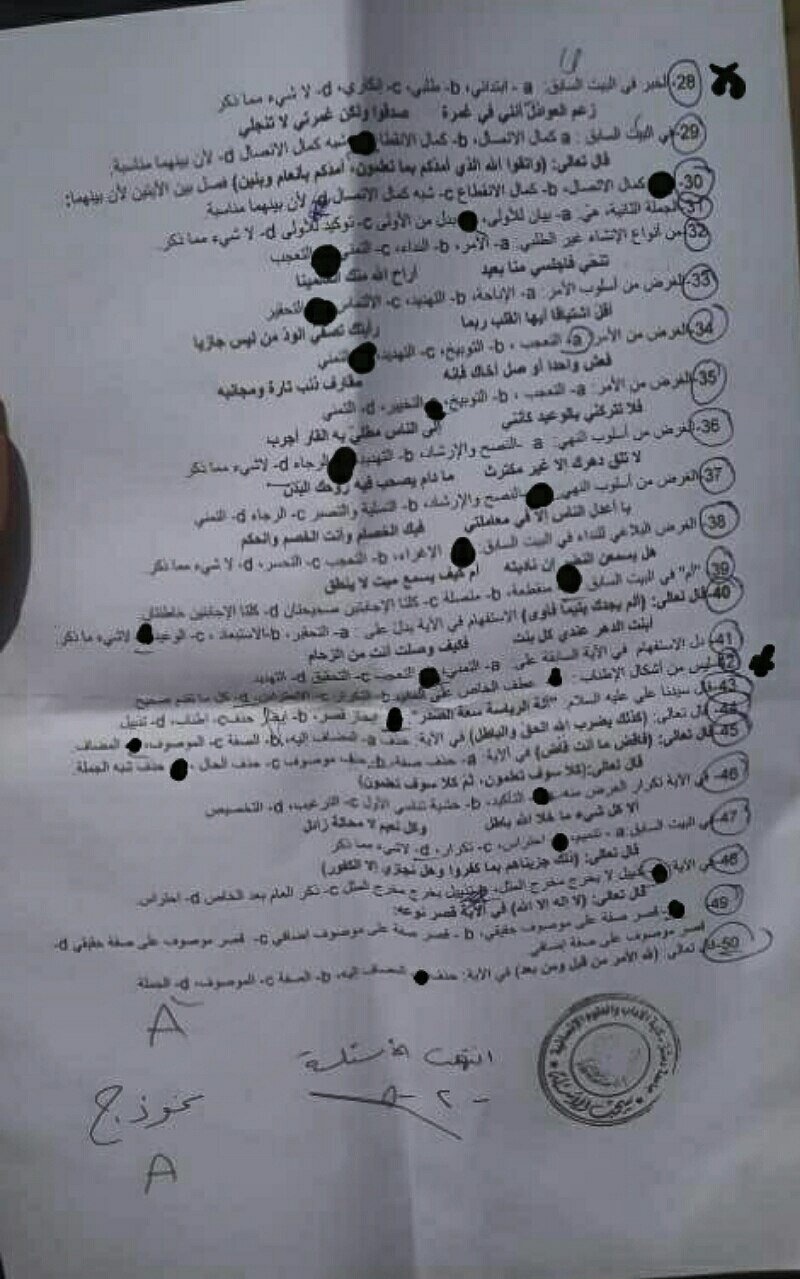 28- الخبر في البيت السابق: a- ابتدائي، b- طلبي، c- إنكاري، d- لا شيء مما ذكر
زعم العواذل أنني في غمرة صدقوا ولكن غمرتي لا تنجلي
29- في البيت السابق: a كمال الاتصال، b- كمال الانقطاع شبه كمال الاتصال d- لأن بينهما مناسبة.
قال تعالى: (واتقوا الله الذي أمدكم بما تعلمون، أمدكم بأنعام وبنين) فصل بين الآيتين لأن بينهما:
30- كمال الاتصال، b- كمال الانقطاع c- شبه كمال الاتصال d- لأن بينهما مناسبة
31- الجملة الثانية، هي: a- بيان للأولى، بدل من الأولى c- توكيد للأولى d- لا شيء مما ذكر.
32- من أنواع الإنشاء غير الطلبي: a- الأمر، b- النداء، c- التمني التعجب
تنحي فاجلسي منا بعيد أراح الله منك العالمينا
33- الغرض من أسلوب الأمر: a- الإباحة، b- التهديد، c- الالتماس التحقير
أقل اشتياقا أيها القلب ربما رأيتك تصفي الود من ليس جازيا
34- الغرض من الأمر: a- التعجب، b- التوبيخ، c- التهديد، التمني
فعش واحدا أو صل أخاك فإنه مقارف ذنب تارة ومجانبه
35- الغرض من الأمر: a- التعجب، b- التوبيخ، التخيير، d- التمني
فلا تتركني بالوعيد كأنني إلى الناس مطلي به القار أجرب
36- الغرض من أسلوب النهي: a- النصح والإرشاد، b- التهديد الرجاء d- لاشيء مما ذكر
لا تلق دهرك إلا غير مكترث ما دام يصحب فيه روحك البدن
37- الغرض من أسلوب النهي: النصح والإرشاد، b- التسلية والتصبر c- الرجاء d- التمني
يا أعدل الناس إلا في معاملتي فيك الخصام وأنت الخصم والحكم
38- الغرض البلاغي للنداء في البيت السابق: الإغراء، b- التعجب c- التحسر، d- لا شيء مما ذكر.
هل يسمعن النضر إن ناديته أم كيف يسمع ميت لا ينطق
39- "أم" في البيت السابق منقطعة، b- متصلة c- كلتا الإجابتين صحيحتان d- كلتا الإجابتين خاطئتان.
40- قال تعالى: (ألم يجدك يتيما فآوى) الاستفهام في الآية يدل على: a- التحقير، b- الاستبعاد، c- الوعيد لاشيء ما ذكر.
أبنت الدهر عندي كل بنت فكيف وصلت أنت من الزحام
41- دل الاستفهام في الآية السابقة على: a- التمني التعجب c- التحقيق d- التهديد
42- ليس من أشكال الإطناب: عطف الخاص على العام، b- التكرار c- الاحتراس، d- كل ما تقدم صحيح
43- قال سيدنا علي عليه السلام: "آلة الرياسة سعة الصدر": إيجاز قصر، b- إيجاز حذف c- إطناب، d- تذييل
44- قال تعالى: (كذلك يضرب الله الحق والباطل) في الآية: حذف a- المضاف إليه، b- الصفة c- الموصوف، المضاف.
45- قال تعالى: (فاقض ما أنت قاض) في الآية: a- حذف صفة، b- حذف موصوف c- حذف الحال، حذف شبه الجملة.
قال تعالى: (كلا سوف تعلمون، ثم كلا سوف تعلمون)
46- في الآية تكرار الغرض منه: التأكيد، b- خشية تناسي الأول c- الترغيب، d- التخصيص
ألا كل شيء ما خلا الله باطل وكل نعيم لا محالة زائل
47- في البيت السابق a- تتميم، احتراس، c- تكرار، d- لاشيء مما ذكر
قال تعالى: (ذلك جزيناهم بما كفروا وهل نجازي إلا الكفور)
48- في الآية تذييل لا يخرج مخرج المثل، b- تذييل يخرج مخرج المثل c- ذكر العام بعد الخاص d- احتراس.
قال تعالى: (لا إله إلا الله) في الآية قصر نوعه:
49- قصر صفة على موصوف حقيقي، b- قصر صفة على موصوف إضافي c- قصر موصوف على صفة حقيقي d-
قصر موصوف على صفة إضافي
50- قال تعالى: (لله الأمر من قبل ومن بعد) في الآية: حذف المضاف إليه، b- الصفة c- الموصوف، d- الجملة
A
انتهت الأسئلة
- ٢ -
نموذج
A